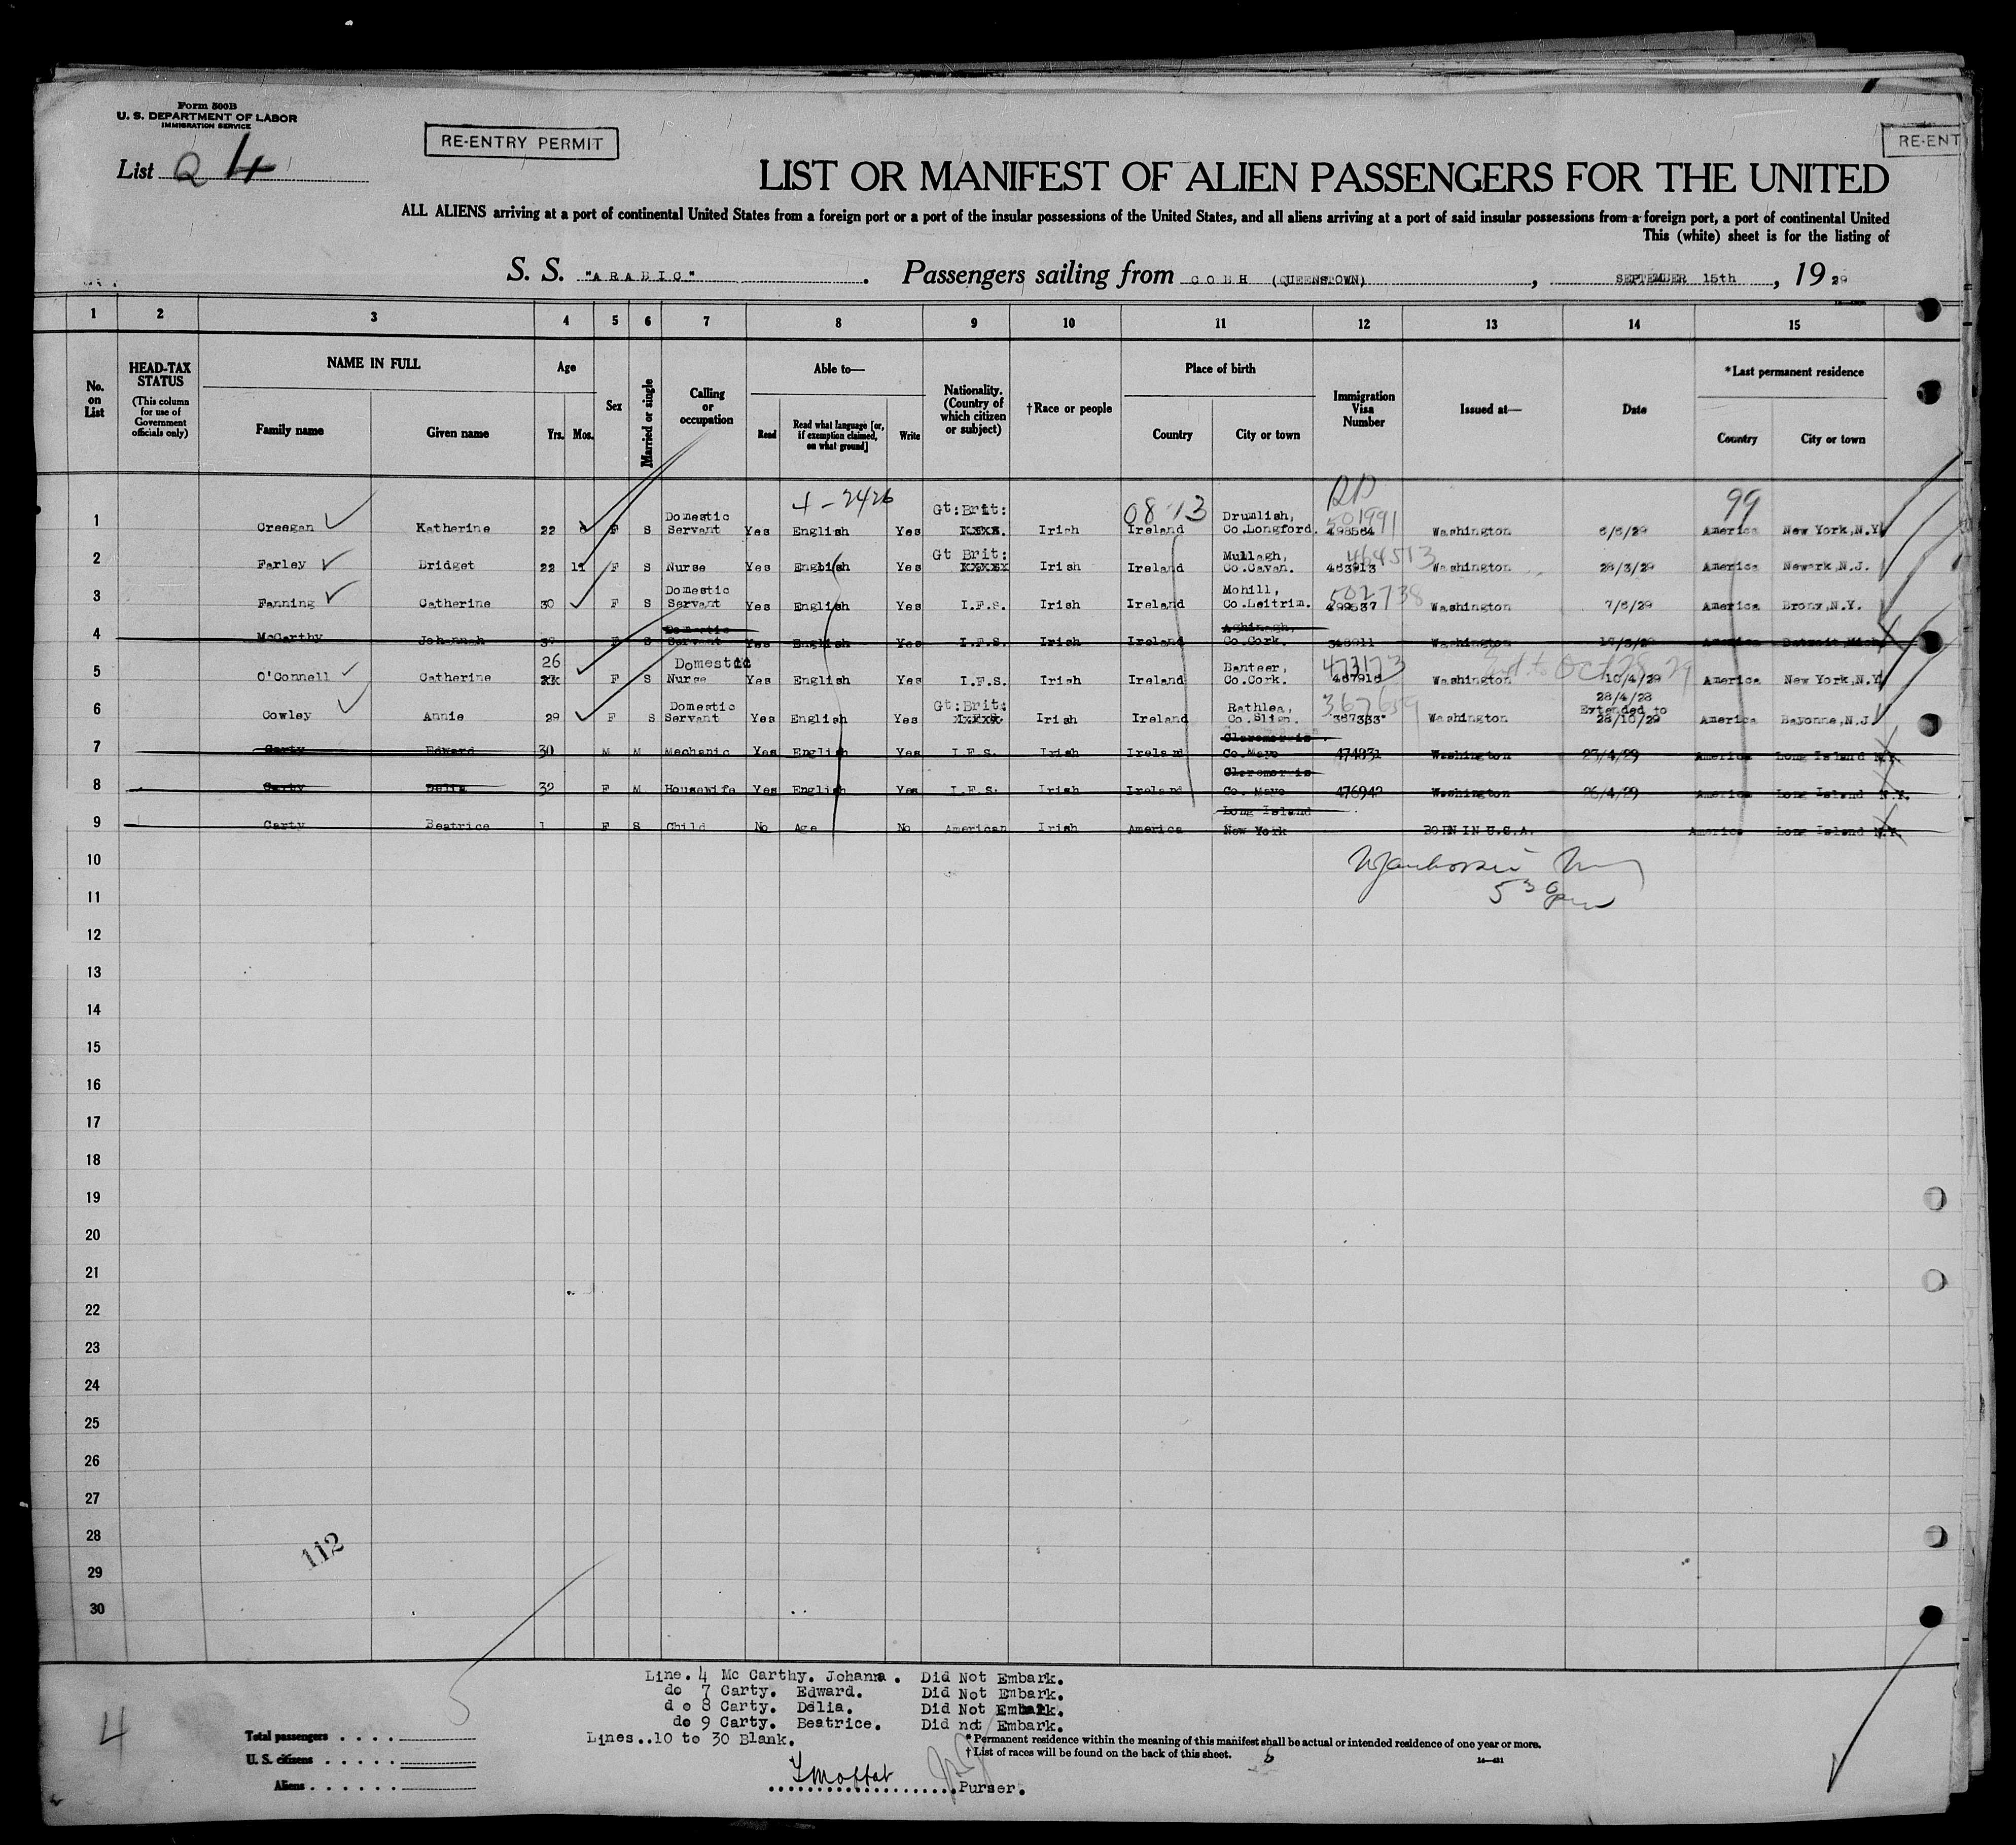 Form 500B
U. S. DEPARTMENT OF LABOR
IMMIGRATION SERVICE
List Q 4
RE-ENTRY PERMIT
RE-ENT
LIST OR MANIFEST OF ALIEN PASSENGERS FOR THE UNITED
ALL ALIENS arriving at a port of continental United States from a foreign port or a port of the insular possessions of the United States, and all aliens arriving at a port of said insular possessions from a foreign port, a port of continental United
This (white) sheet is for the listing of
S. S. "ARABIC". Passengers sailing from COBH (QUEENSTOWN), SEPTEMBER 15th, 19 29
1 2 3 4 5 6 7 8 9 10 11 12 13 14 15
No. on List
HEAD-TAX STATUS (This column for use of Government officials only)
NAME IN FULL Family name Given name
Age Yrs. Mos.
Sex
Married or single
Calling or occupation
Able to— Read Read what language [or, if exemption claimed, on what ground] Write
Nationality. (Country of which citizen or subject)
†Race or people
Place of birth Country City or town
Immigration Visa Number
Issued at—
Date
*Last permanent residence Country City or town
4-2426 08 13 99
1 Creegan Katherine 22 F S Domestic Servant Yes English Yes Gt:Brit: Irish Ireland Drumlish, Co.Longford. 498564 501991 Washington 6/6/29 America New York,N.Y.
2 Farley Bridget 22 11 F S Nurse Yes English Yes Gt Brit: Irish Ireland Mullagh, Co.Cavan. 463913 464513 Washington 28/3/29 America Newark,N.J.
3 Fanning Catherine 30 F S Domestic Servant Yes English Yes I.F.S. Irish Ireland Mohill, Co.Leitrim. 499537 502738 Washington 7/6/29 America Bronx,N.Y.
4 McCarthy Johannah F S Domestic Servant Yes English Yes I.F.S. Irish Ireland Aghinagh, Co.Cork. Washington America Detroit,Mich
5 O'Connell Catherine 26 F S Domestic Nurse Yes English Yes I.F.S. Irish Ireland Banteer, Co.Cork. 467916 Washington 10/4/29 America New York,N.Y.
6 Cowley Annie 29 F S Domestic Servant Yes English Yes Gt:Brit: Irish Ireland Rathlea, Co.Sligo. 367353 367659 Washington 28/4/28 Extended to 28/10/29 America Bayonne,N.J.
7 Carty Edward 30 M M Mechanic Yes English Yes I.F.S. Irish Ireland Claremorris Co.Mayo 474831 Washington 23/4/29 America Long Island N.Y.
8 Carty Delia 32 F M Housewife Yes English Yes I.F.S. Irish Ireland Claremorris Co. Mayo 476942 Washington 26/4/29 America Long Island N.Y.
9 Carty Beatrice 1 F S Child No Age No American Irish America Long Island New York BORN IN U.S.A. America Long Island N.Y.
10
11
12
13
14
15
16
17
18
19
20
21
22
23
24
25
26
27
28
29
30
112
Line. 4 Mc Carthy. Johanna. Did Not Embark.
do 7 Carty. Edward. Did Not Embark.
do 8 Carty. Delia. Did Not Embark.
do 9 Carty. Beatrice. Did not Embark.
Lines..10 to 30 Blank.
4
Total passengers . . . .
U. S. citizens . . . . .
Aliens . . . . . .
* Permanent residence within the meaning of this manifest shall be actual or intended residence of one year or more.
† List of races will be found on the back of this sheet.
Moffat
Purser.